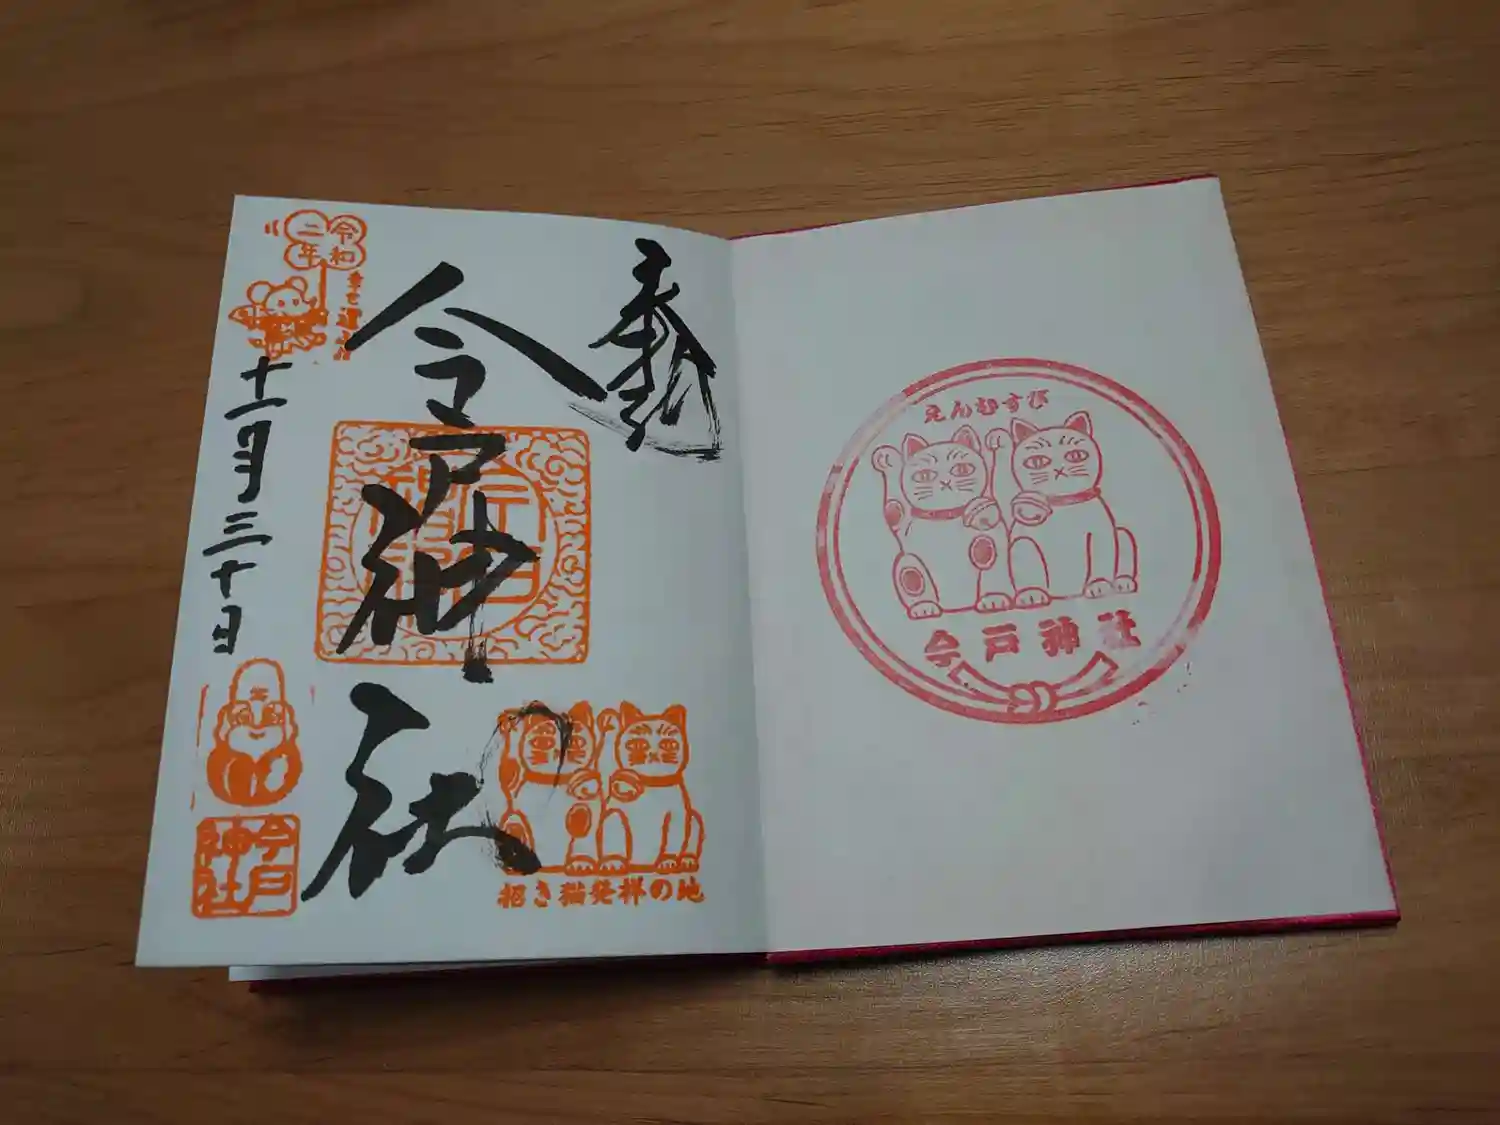 奉拝
今戸神社
令和
二年
十一月三十日
今戸
神社
招き猫発祥の地
えんむすび
今戸神社